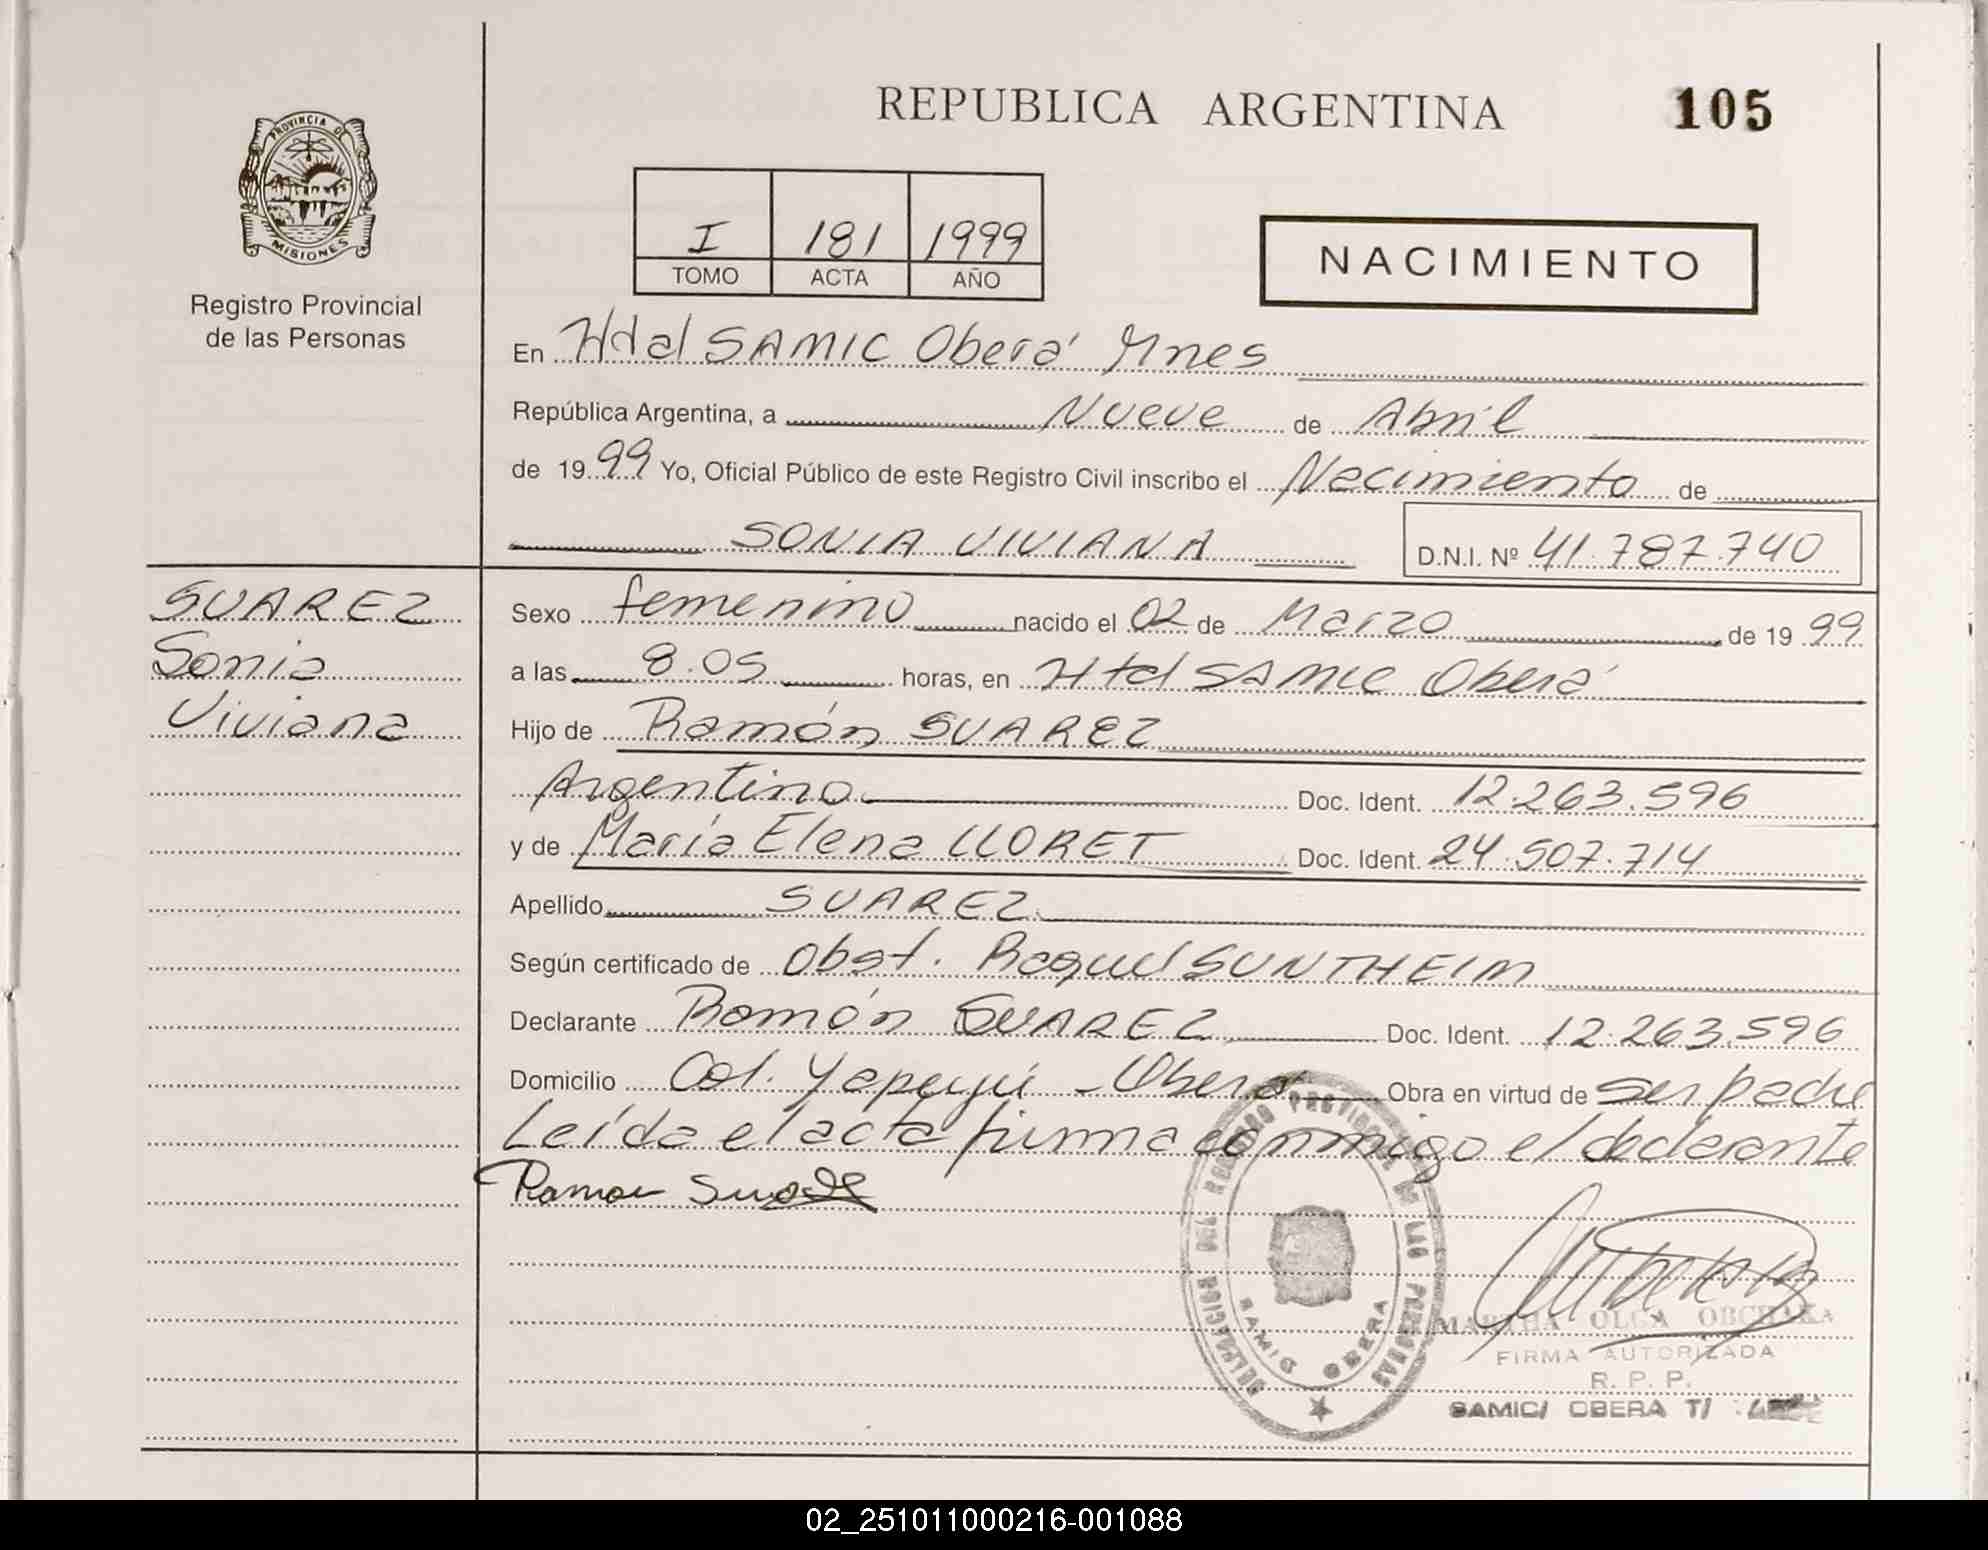 REPUBLICA ARGENTINA
105
PROVINCIA DE
MISIONES
Registro Provincial
de las Personas
I 181 1999
TOMO ACTA AÑO
NACIMIENTO
En Htal SAMIC Oberá Mnes
República Argentina, a Nueve de Abril
de 19 99 Yo, Oficial Público de este Registro Civil inscribo el Nacimiento de
SONIA VIVIANA D.N.I. Nº 41.787.740
SUAREZ
Sonia
Viviana
Sexo femenino nacido el 02 de Marzo de 19 99
a las 8.05 horas, en Htal SAMIC Oberá
Hijo de Ramón SUAREZ
Argentino Doc. Ident. 12.263.596
y de María Elena LLORET Doc. Ident. 24.507.714
Apellido SUAREZ
Según certificado de Obst. Raquel SUNTHEIM
Declarante Ramón SUAREZ Doc. Ident. 12.263.596
Domicilio Col. Yapeyú - Oberá Obra en virtud de ser padre
Leída el acta firma conmigo el declarante
Ramon
DELEGACION DEL REGISTRO PROVINCIAL DE LAS PERSONAS
SAMIC OBERA
MARTHA OLGA
FIRMA AUTORIZADA
R. P. P.
SAMIC/ OBERA T/
02_251011000216-001088